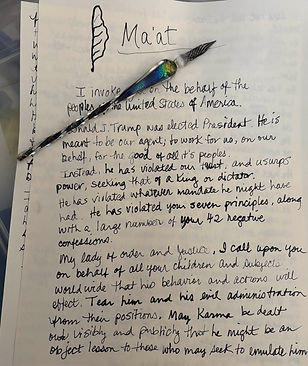 Ma'at
I invoke on the behalf of the
peoples of the United States of America.
Donald J. Trump was elected President. He is
meant to be our agent; to work for us, on our
behalf, for the good of all it's peoples.
Instead, he has violated our trust, and usurps
power, seeking that of a king or dictator.
He has violated whatever mandate he might have
had. He has violated your seven principles, along
with a large number of your 42 negative
confessions.
My lady of order and Justice, I call upon you
on behalf of all your children and subjects
worldwide that his behavior and actions will
effect. Tear him and his evil administration
from their positions. May Karma be dealt
out, visibly and publicly that he might be an
object lesson to those who may seek to emulate him